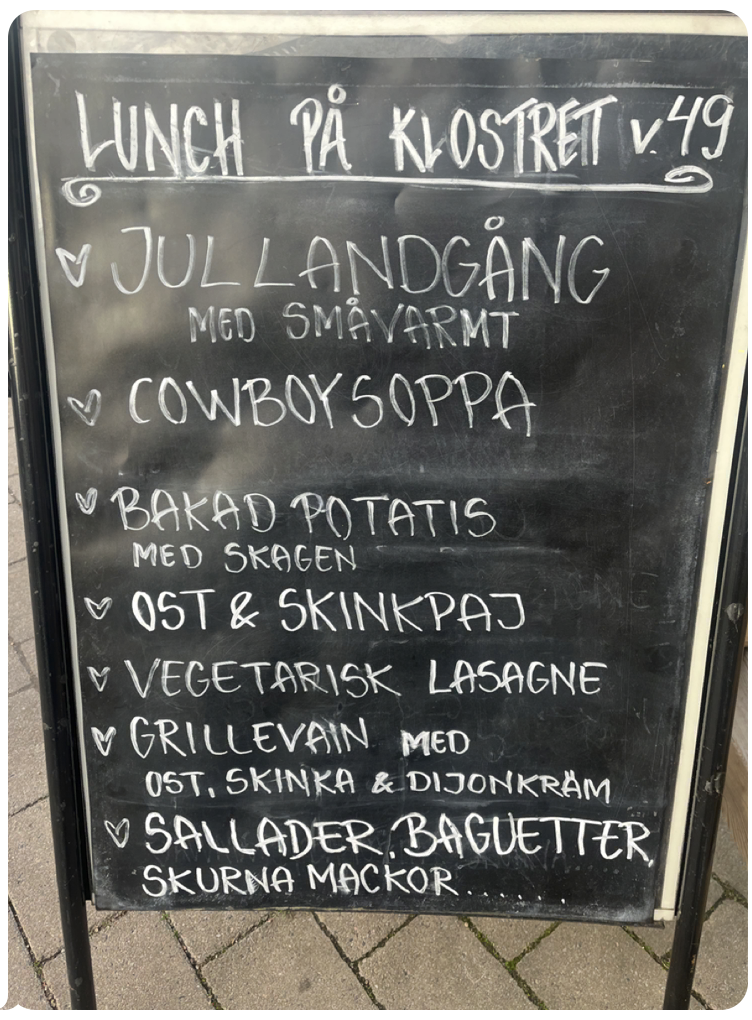 LUNCH PÅ KLOSTRET v.49
JUL LANDGÅNG
MED SMÅVARMT
COWBOYSOPPA
BAKAD POTATIS
MED SKAGEN
OST & SKINKPAJ
VEGETARISK LASAGNE
GRILLEVAIN MED
OST, SKINKA & DIJONKRÄM
SALLADER, BAGUETTER,
SKURNA MACKOR......